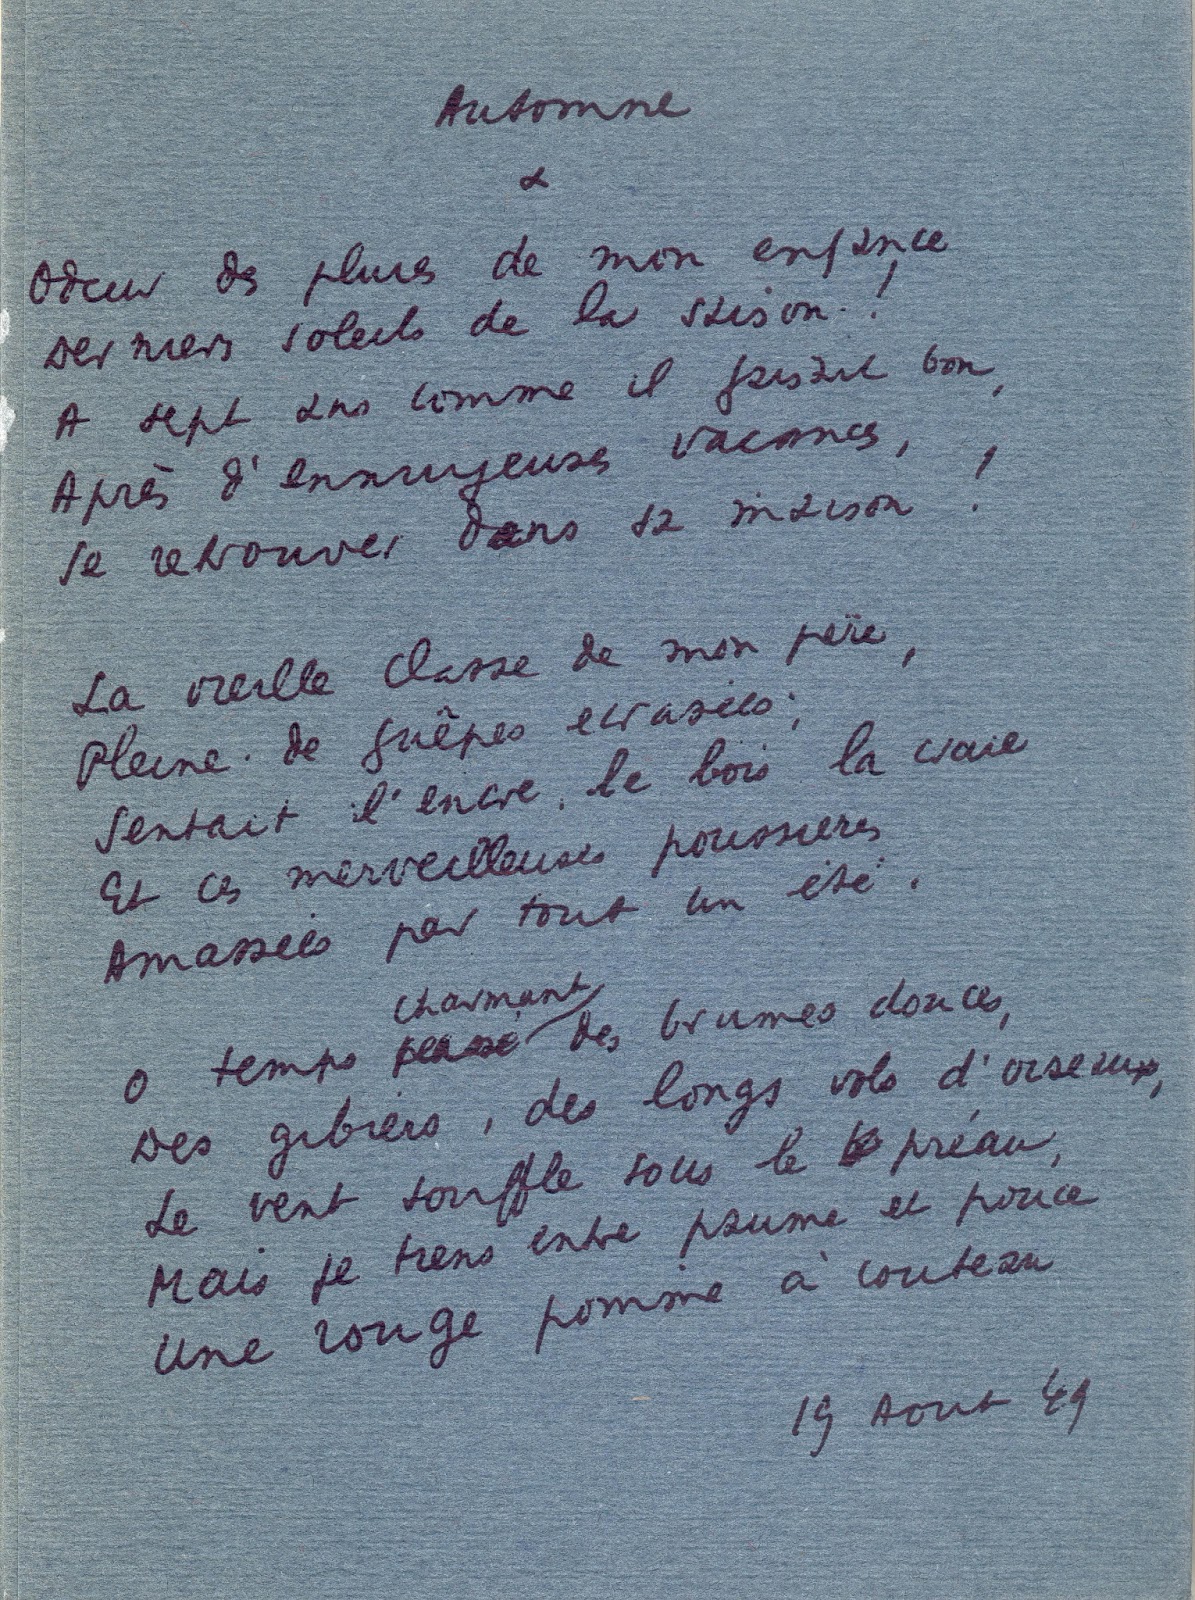 Automne
Odeur des pluies de mon enfance
Derniers soleils de la saison !
A sept ans comme il faisait bon,
Après d'ennuyeuses vacances,
Se retrouver dans sa maison !
La vieille classe de mon père,
Pleine de guêpes écrasées,
Sentait l'encre, le bois la craie
Et ces merveilleuses poussières
Amassées par tout un été.
charmant
O temps des brumes douces,
Des gibiers, des longs vols d'oiseaux,
Le vent souffle sous le préau,
Mais je tiens entre paume et pouce
Une rouge pomme à couteau
19 Aout 49